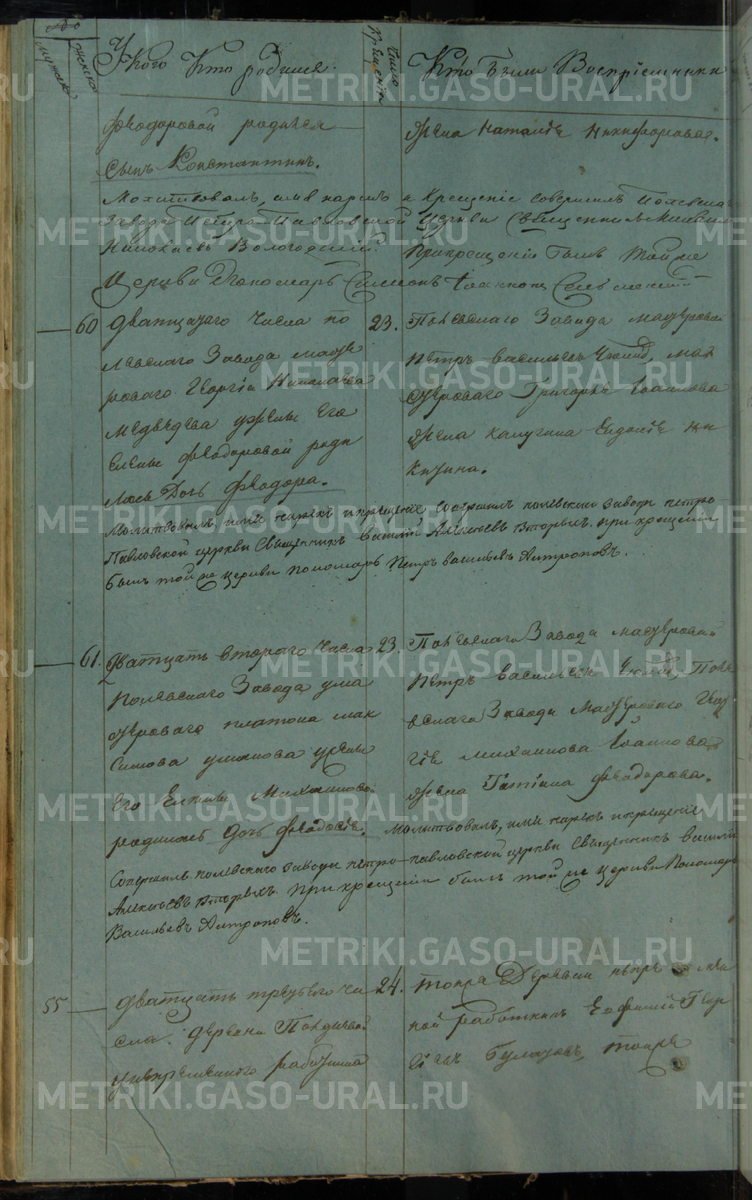 У Кого Кто родился.
Число крещенія
Кто были Воспріемники
мужеска
женска
Феодоровой родился
Сынъ Константинъ.
жена Наталія Никифорова.
Молитвовалъ, имя нарекъ и Крещеніе совершилъ Полевскаго
Завода Петро-Павловской Церкви Священникъ
Николаевъ Вологодскій. Прикрещеніи былъ той же
Церкви Пономарь Симеонъ
60
Дватцатаго Числа по
левскаго Завода масте
роваго Георгія Николаева
Медведева жены Его
Елены Феодоровой роди
лась Дочь Феодора.
23.
Полевскаго Завода мастеровой
Петръ Васильевъ мас
тероваго Григорья Іоаннова
жена Калугина Евдокія Ни
китина.
Молитвовалъ имя нарекъ и крещеніе совершилъ полевскаго завода петро
Павловской церкви Священникъ Василій Алексѣевъ Вторыхъ. при крещеніи
былъ той же церкви пономарь Петръ Васильевъ Антроповъ.
61.
Дватцать втораго Числа
Полевскаго Завода у мас
тероваго платона мак
симова ушакова жены
Его Елены Михайловой
родилась дочь Феодосія.
23.
Полевскаго Завода мастеровой
Петръ Васильевъ Поле
вскаго Завода Мастероваго Геор
гія Михайлова Іоаннова
жена Татіана Феодорова.
Молитвовалъ, имя нарекъ и крещеніе
Совершилъ полевскаго завода петро-павловской церкви Священникъ Василій
Алексѣевъ Вторыхъ. При крещеніи былъ той же церкви Пономарь
Васильевъ Антроповъ.
55
Дватцать третьяго чи
сла. деревни Полдневой
работника
24.
тояже Деревни
ной работникъ Евфимій Геор
гіевъ Булатовъ, тояже